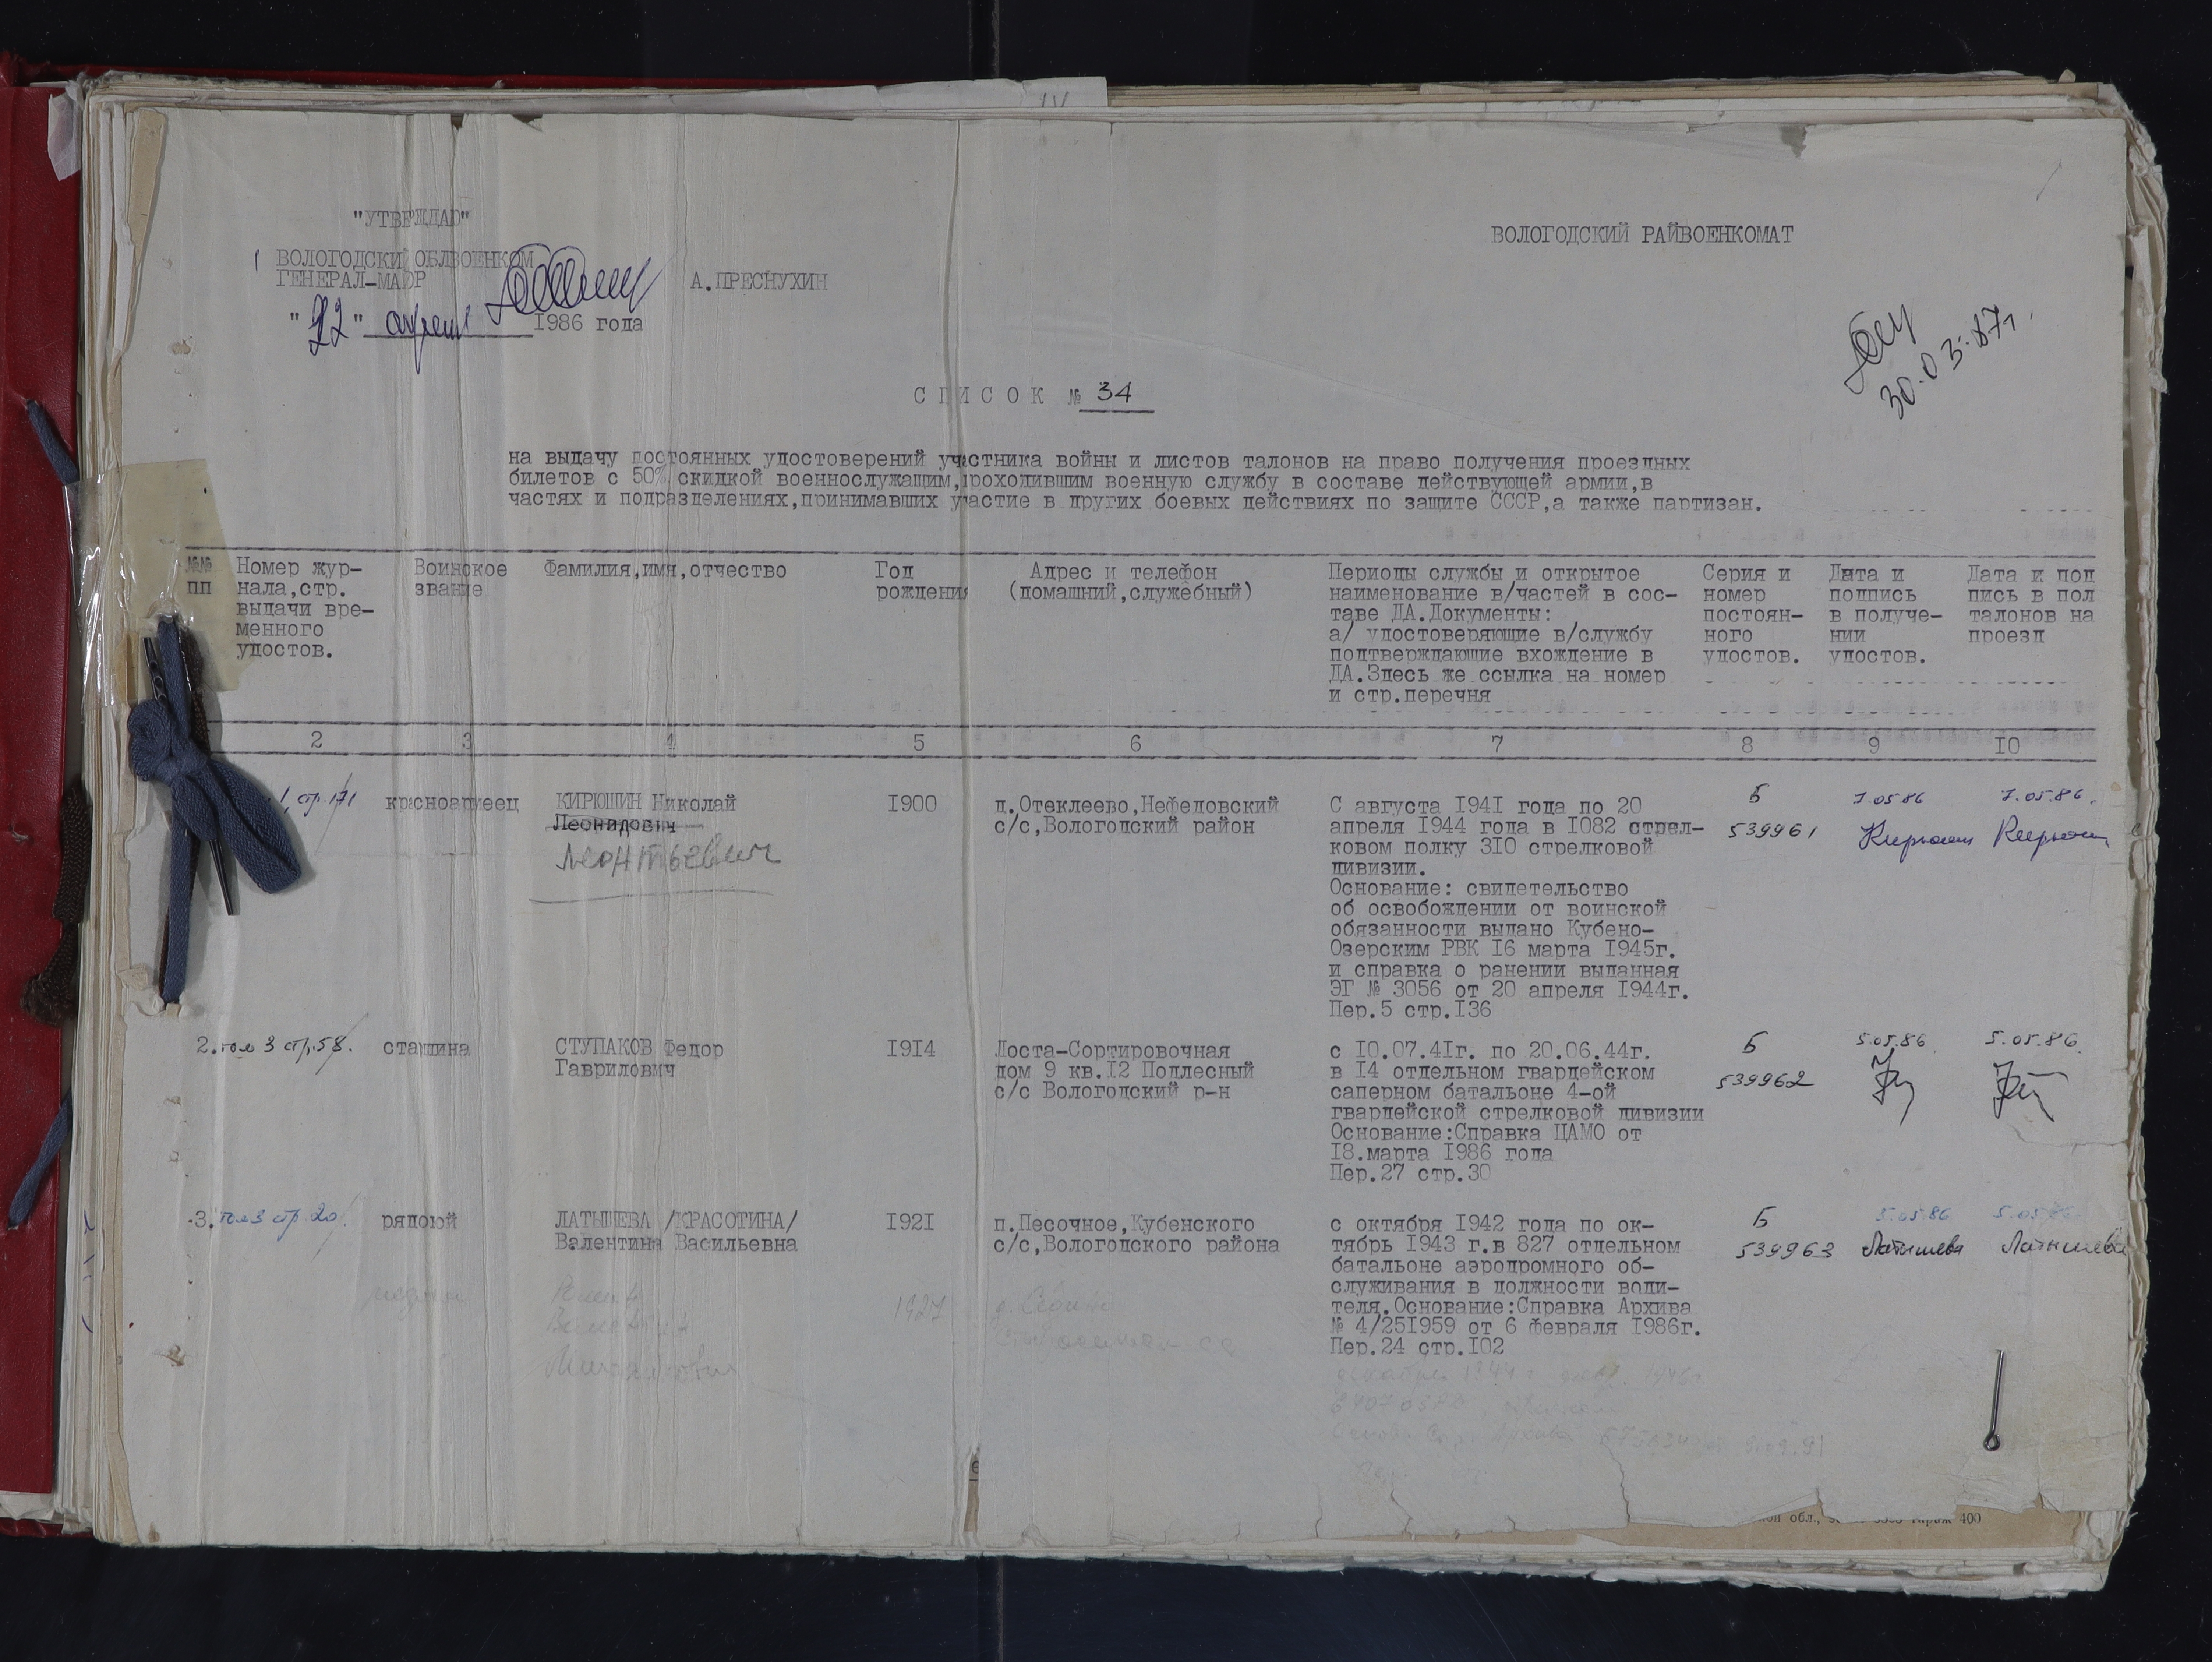 "УТВЕРЖДАЮ"
ВОЛОГОДСКИЙ ОБЛВОЕНКОМ
ГЕНЕРАЛ-МАЙОР
А.ПРЕСНУХИН
"22" апреля 1986 года
ВОЛОГОДСКИЙ РАЙВОЕНКОМАТ
30.03.87г.
СПИСОК № 34
на выдачу постоянных удостоверений участника войны и листов талонов на право получения проездных
билетов с 50% скидкой военнослужащим,проходившим военную службу в составе действующей армии,в
частях и подразделениях,принимавших участие в других боевых действиях по защите СССР,а также партизан.
№№
пп
Номер жур-
нала,стр.
выдачи вре-
менного
удостов.
Воинское
звание
Фамилия,имя,отчество
Год
рождения
Адрес и телефон
(домашний,служебный)
Периоды службы и открытое
наименование в/частей в сос-
таве ДА.Документы:
а/ удостоверяющие в/службу
подтверждающие вхождение в
ДА.Здесь же ссылка на номер
и стр.перечня
Серия и
номер
постоян-
ного
удостов.
Дата и
подпись
в получе-
нии
удостов.
Дата и под
пись в пол
талонов на
проезд
2 3 4 5 6 7 8 9 10
1, стр.171
красноармеец
КИРЮШИН Николай
Леонидович
Леонтьевич
1900
д.Отеклеево,Нефедовский
с/с,Вологодский район
С августа 1941 года по 20
апреля 1944 года в 1082 стрел-
ковом полку 310 стрелковой
дивизии.
Основание: свидетельство
об освобождении от воинской
обязанности выдано Кубено-
Озерским РВК 16 марта 1945г.
и справка о ранении выданная
ЭГ № 3056 от 20 апреля 1944г.
Пер.5 стр.136
Б
539961
7.05.86
Кирюшин
7.05.86.
Кирюшин
2. том 3 стр.58.
старшина
СТУПАКОВ Федор
Гаврилович
1914
Лоста-Сортировочная
дом 9 кв.12 Подлесный
с/с Вологодский р-н
с 10.07.41г. по 20.06.44г.
в 14 отдельном гвардейском
саперном батальоне 4-ой
гвардейской стрелковой дивизии
Основание:Справка ЦАМО от
18.марта 1986 года
Пер.27 стр.30
Б
539962
5.05.86.
5.05.86.
3. том 3 стр 20
рядовой
ЛАТЫШЕВА /КРАСОТИНА/
Валентина Васильевна
1921
п.Песочное,Кубенского
с/с,Вологодского района
с октября 1942 года по ок-
тябрь 1943 г.в 827 отдельном
батальоне аэродромного об-
служивания в должности води-
теля.Основание:Справка Архива
№ 4/251959 от 6 февраля 1986г.
Пер.24 стр.102
Б
539963
5.05.86
Латышева
5.05.86
Латышева
1927
обл.,
400